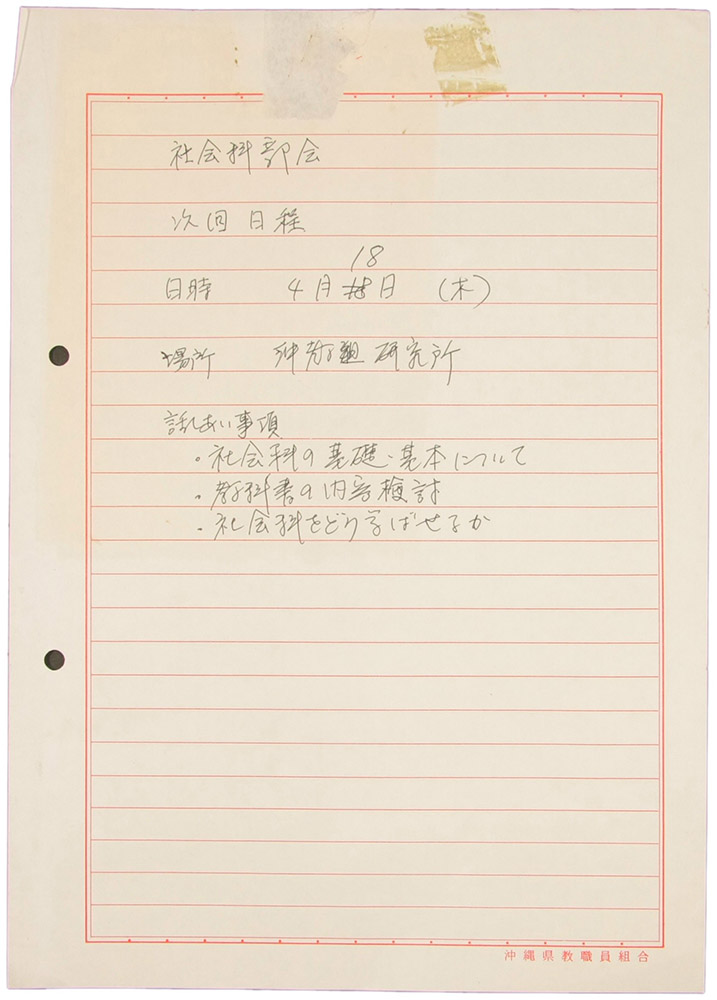 社会科部会
次回日程
18
日時 4月日(木)
場所 沖教組 研究所
話しあい事項
・社会科の基礎・基本について
・教科書の内容検討
・社会科をどう学ばせるか
沖縄県教職員組合